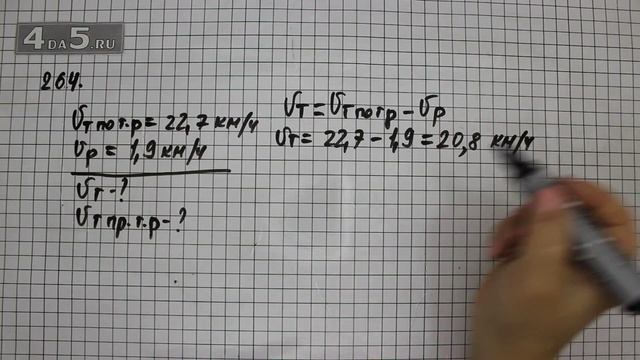 4DA5.RU
264.
Vт по т.р = 22,7 км/ч
Vр = 1,9 км/ч
Vт - ?
Vт пр.т.р - ?
Vт = Vт по т р - Vр
Vт = 22,7 - 1,9 = 20,8 км/ч